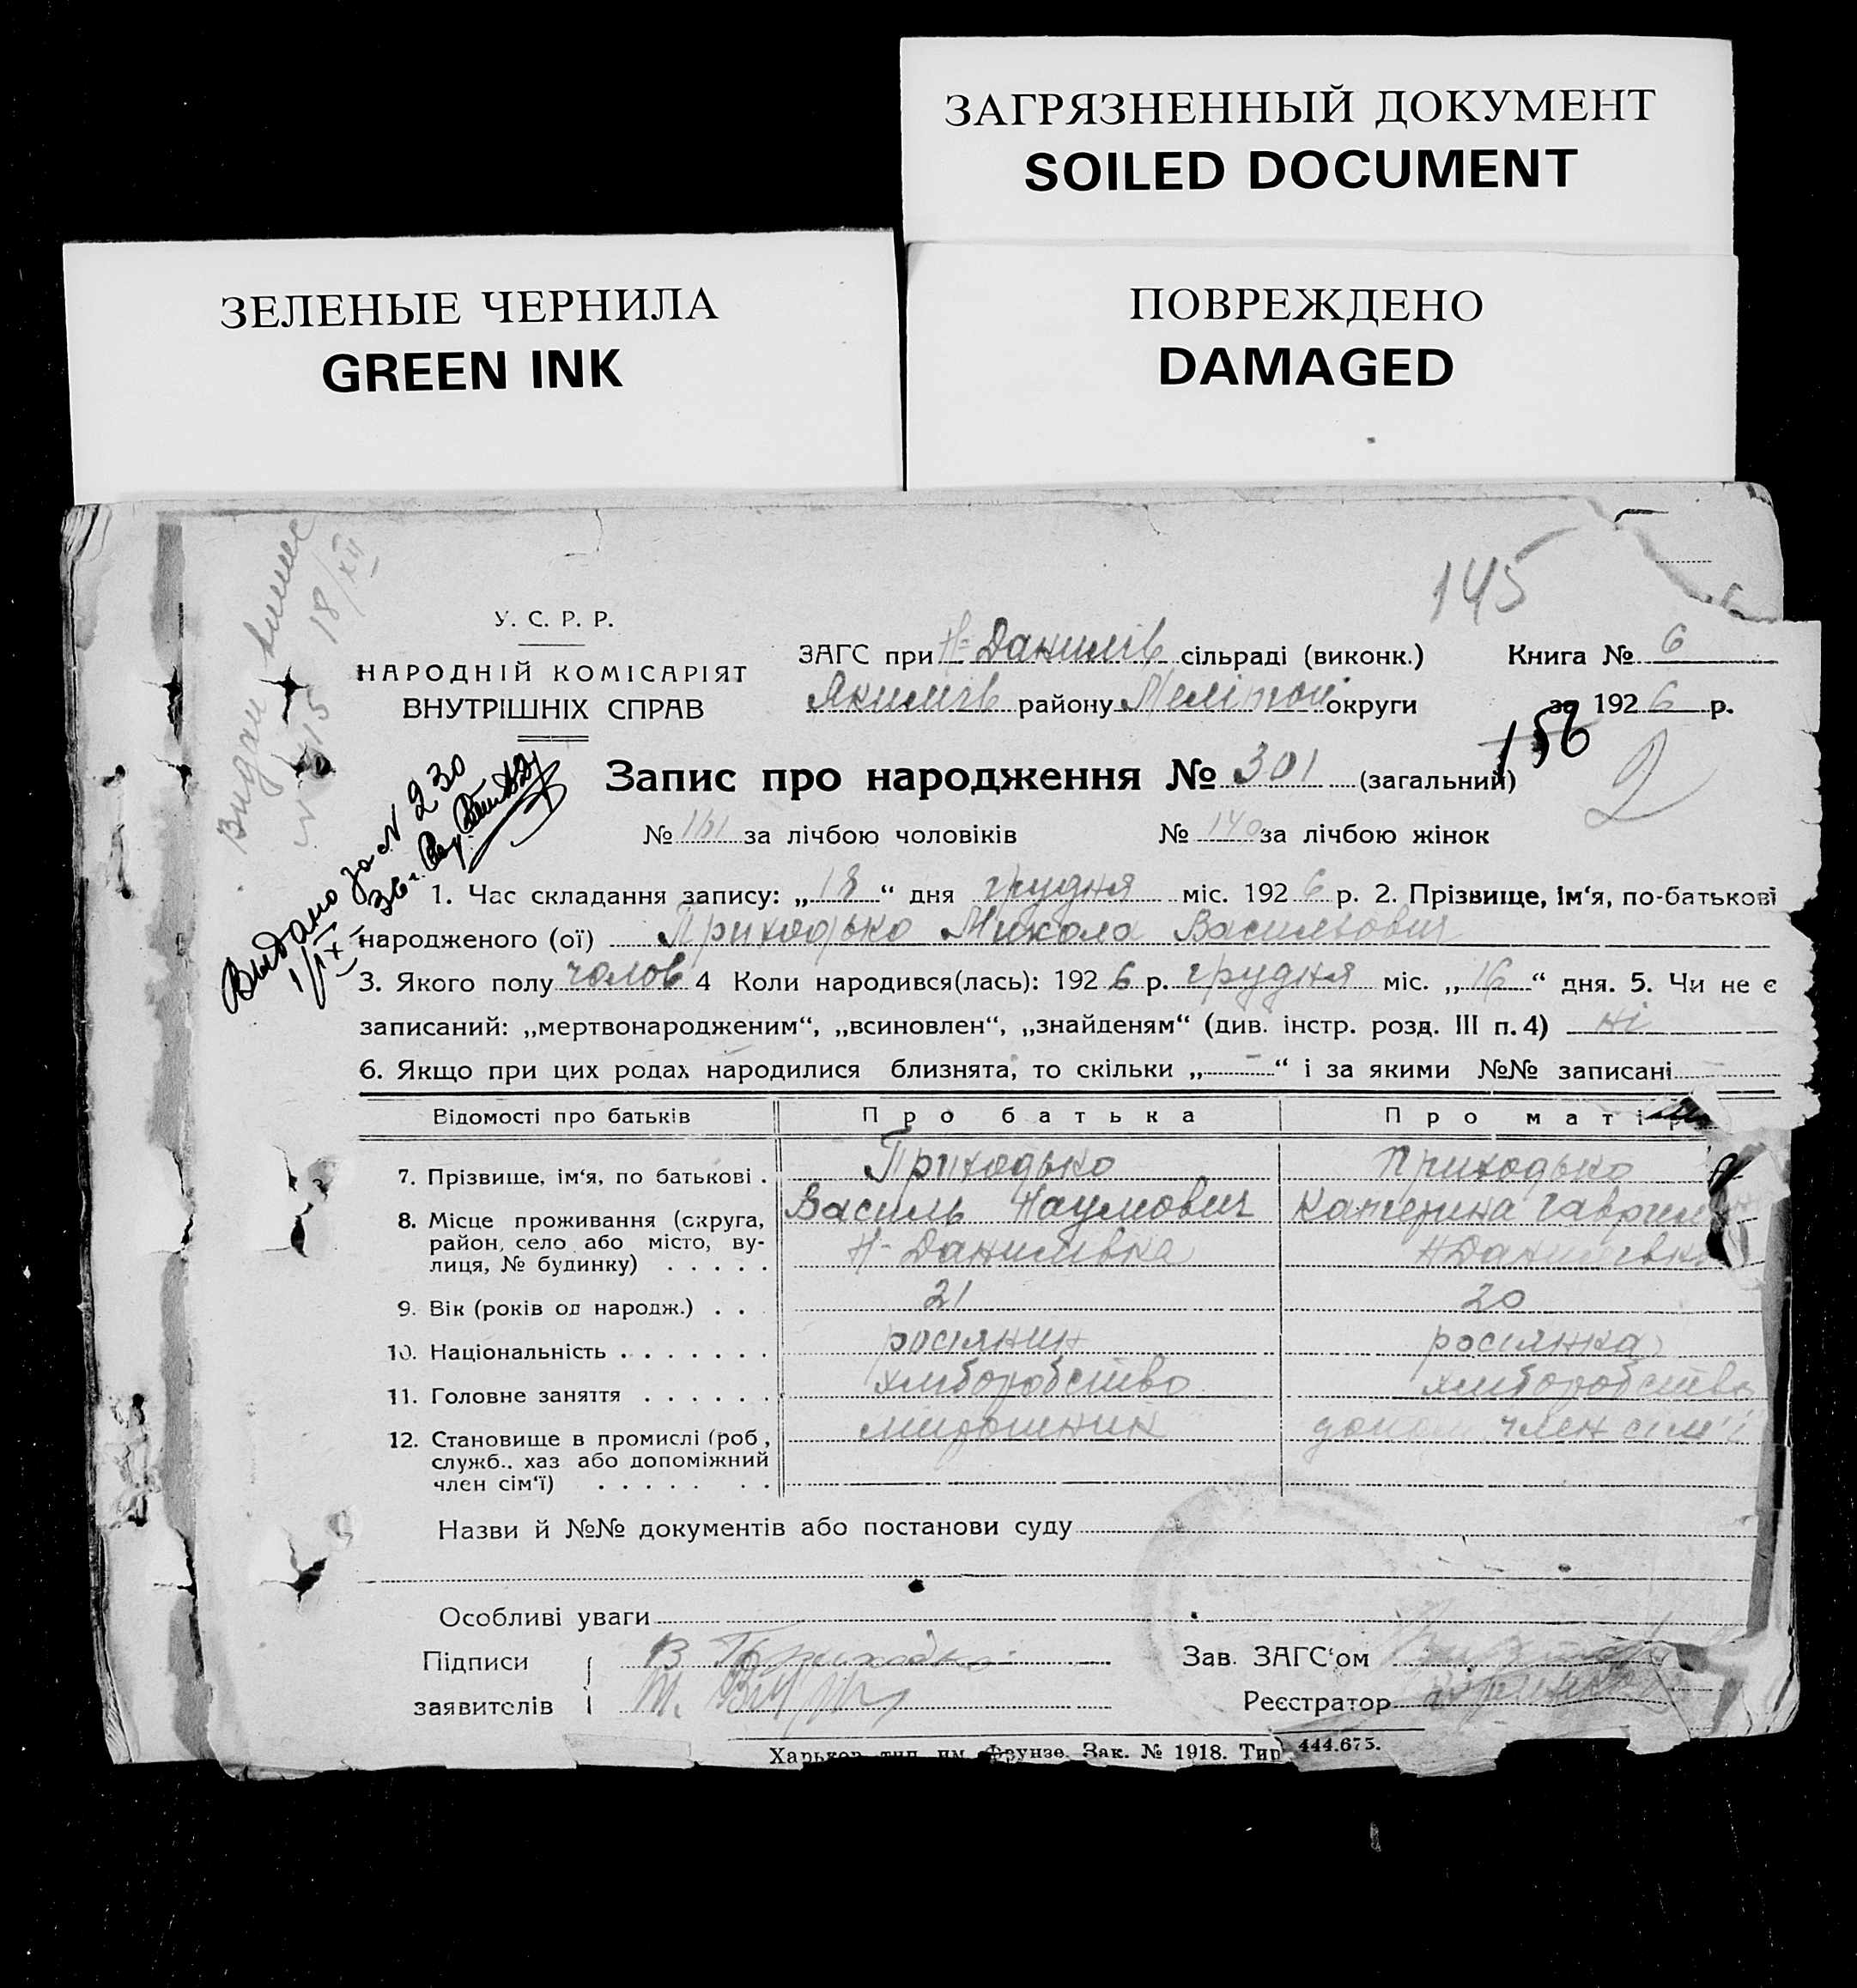 ЗАГРЯЗНЕННЫЙ ДОКУМЕНТ
SOILED DOCUMENT
ЗЕЛЕНЫЕ ЧЕРНИЛА
GREEN INK
ПОВРЕЖДЕНО
DAMAGED
145
Видан
18/XII
№ 15
Выдано за № 230
1/IX 36 г.
У. С. Р. Р.
НАРОДНІЙ КОМІСАРІЯТ
ВНУТРІШНІХ СПРАВ
ЗАГС при Н-Данилів сільраді (виконк.) Книга № 6
Якимів району Мелітоп округи за 1926 р.
156
2
Запис про народження № 301 (загальний)
№ 161 за лічбою чоловіків № 140 за лічбою жінок
1. Час складання запису: „18“ дня грудня міс. 1926 р. 2. Прізвище, ім‘я, по-батькові
народженого (ої) Приходько Микола Васильович
3. Якого полу чолов 4 Коли народився(лась): 1926 р. грудня міс. „16“ дня. 5. Чи не є
записаний: „мертвонародженим“, „всиновлен“, „знайденям“ (див. інстр. розд. III п. 4) ні
6. Якщо при цих родах народилися близнята, то скільки „—“ і за якими №№ записані
Відомості про батьків Про батька Про матір
7. Прізвище, ім‘я, по батькові . Приходько Приходько
Василь Наумович Катерина Гаврил
8. Місце проживання (округа,
район, село або місто, ву-
лиця, № будинку) . . . . . Н-Данилівка НДанилівка
9. Вік (років од народж.) . . . 21 20
10. Національність . . . . . . . росіянин росіянка
11. Головне заняття . . . . . . хліборобство хліборобство
12. Становище в промислі (роб., мирошник допом член сім'ї
служб., хаз або допоміжний
член сім‘ї) . . . . . . .
Назви й №№ документів або постанови суду
Особливі уваги
Підписи В Приходько Зав. ЗАГС‘ом
заявителів Реєстратор
Харьков тип. им. Фрунзе. Зак. № 1918. Тир 444.675.